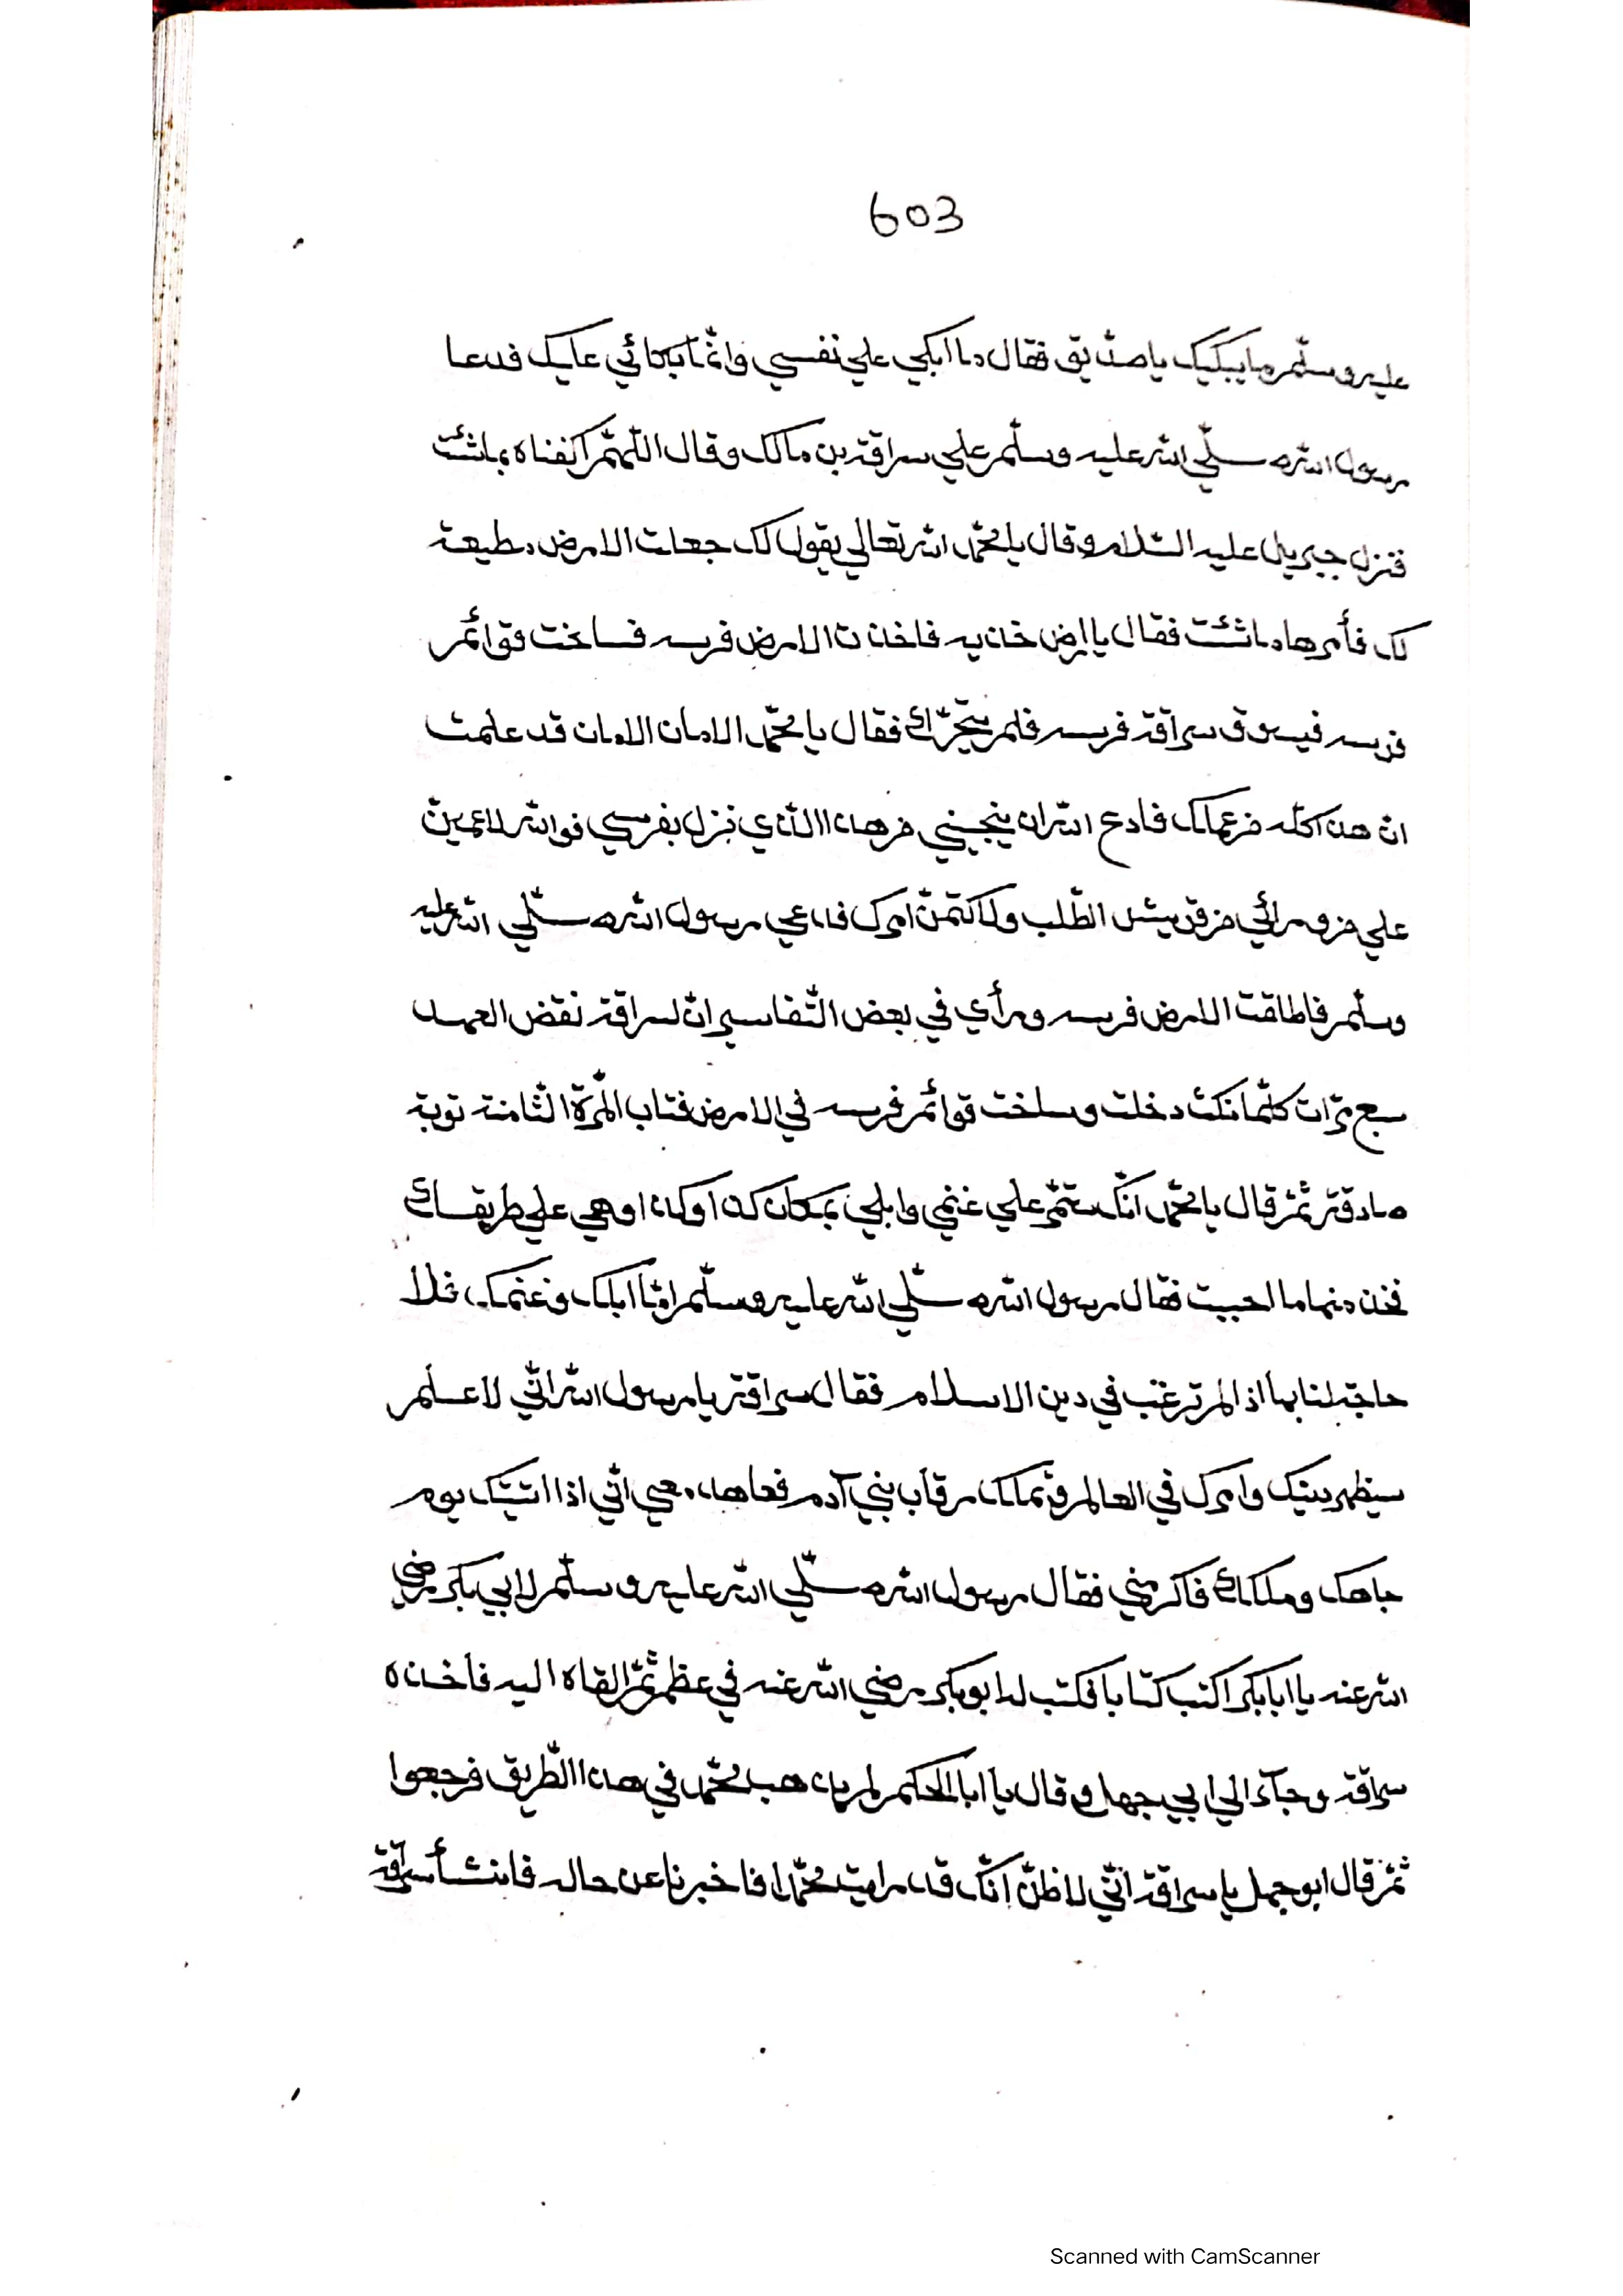 603
عليه وسلّم ما يبكيك يا صدّيق فقال ما ابكي علي نفسي وانّما بكائي عليك فدعا
رسول الله صلّي الله عليه وسلّم علي سراقة بن مالك وقال اللّهمّ اكفناه بماشئت
فنزل جبريل عليه السّلام وقال يا محمّد الله تعالي يقول لك جعلت الارض مطيعة
لك فأمرها ماشئت فقال يا ارض خذيه فاخذت الارض فرسه فساخت قوائم
فرسه فيسوق سراقة فرسه فلم يتحرّك فقال يا محمّد الامان الامان قد علمت
انّ هذا كلّه من عملك فادع الله ان ينجيني من هذا الّذي نزل بفرسي فوالله لاعمينّ
علي من ورائي من قريش الطّلب ولاكتمنّ امرك فدعي رسول الله صلّي الله عليه
وسلّم فاطلقت الارض فرسه ورأي في بعض التّفاسير انّ سراقة نقض العهد
سبع مرّات كلّما نكث دخلت وساخت قوائم فرسه في الارض فتاب المرّة الثّامنة توبة
صادقة ثمّ قال يا محمّد انّك ستمرّ علي غنمي وابلي بمكان كذا وكذا وهي علي طريقك
فخذ منها ما احببت فقال رسول الله صلّي الله عليه وسلّم امّا ابلك وغنمك فلا
حاجة لنا بها اذا لم ترغب في دين الاسلام فقال سراقة يا رسول الله انّي لاعلم
سيظهر دينك وامرك في العالم وتملك رقاب بني آدم فعاهد معي انّي اذا اتيتك يوم
جاهك وملكك فاكرمني فقال رسول الله صلّي الله عليه وسلّم لابي بكر رضي
الله عنه يا ابابكر اكتب كتابا فكتب له ابوبكر رضي الله عنه في عظم ثمّ القاه اليه فأخذه
سراقة وجآء الي ابي جهل وقال يا ابا الحكم لم يذهب محمّد في هذا الطّريق فرجعوا
ثمّ قال ابوجهل يا سراقة انّي لاظنّ انّك قد رايت محمّدا فاخبرنا عن حاله فانشأ سراقة
Scanned with CamScanner